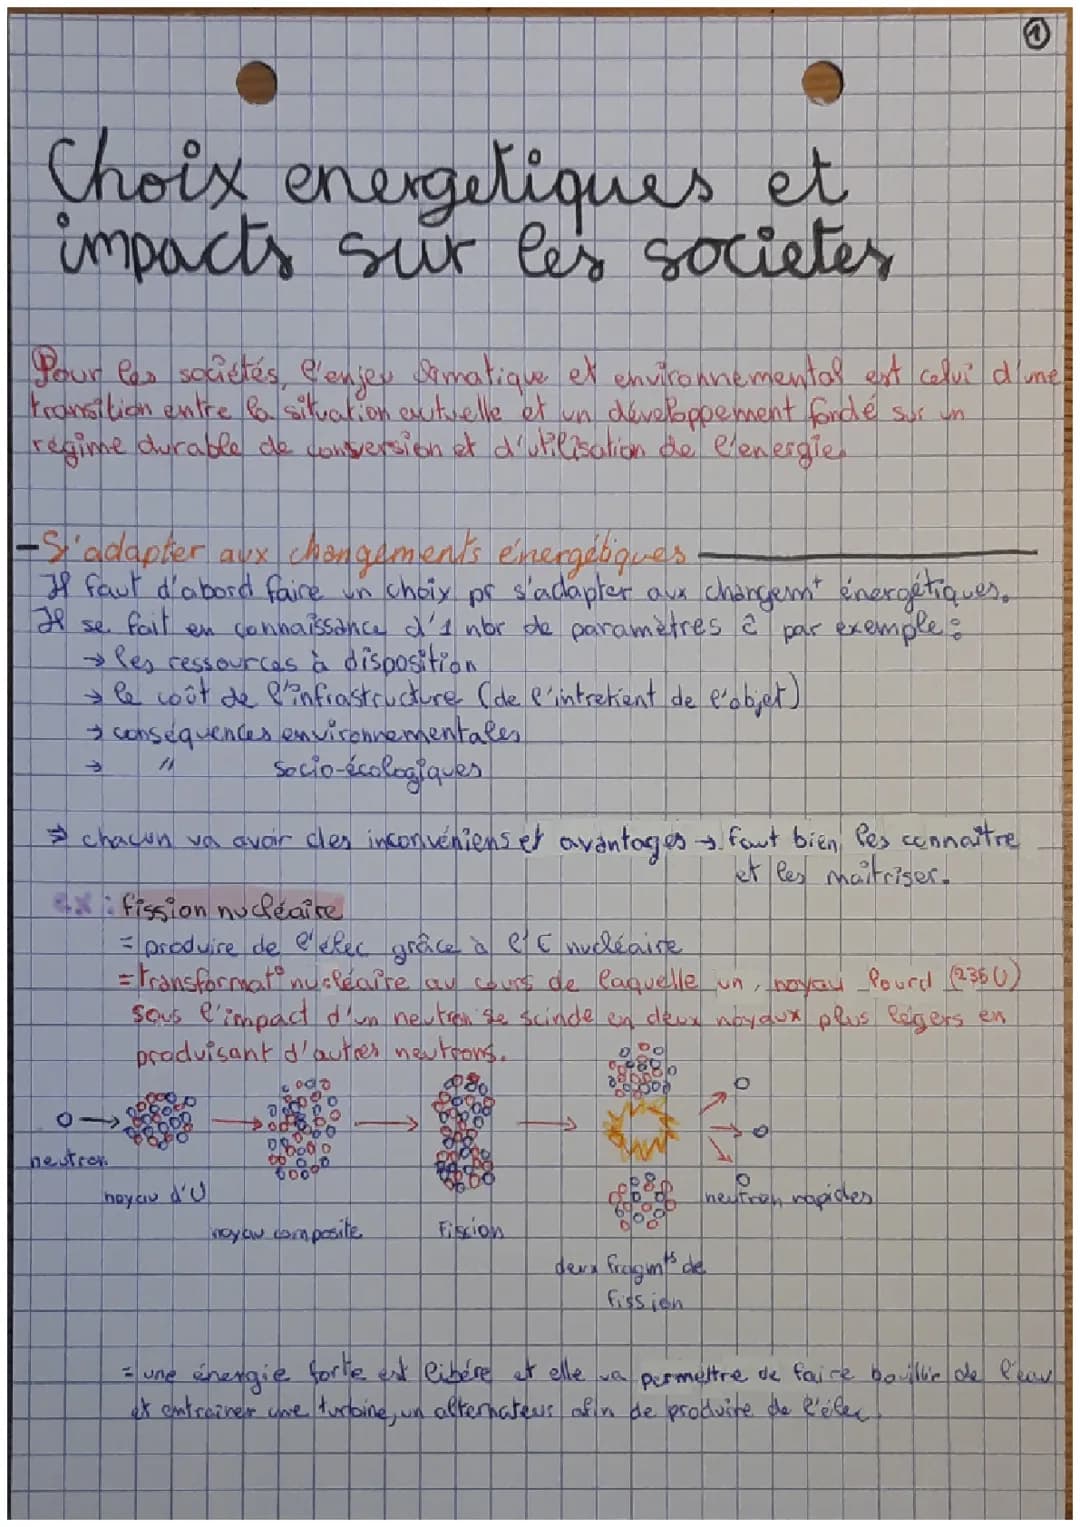 1
Choix energetiques et
impacts sur les societes
Pour les sociétés, l'enjeu climatique et environnemental est celui d'une
transition entre la situation actuelle et un développement fondé sur un
régime durable de conversion et d'utilisation de l'energie.
- S'adapter aux changements énergétiques
Il faut d'abord faire un choix pr s'adapter aux changemt énergétiques.
Il se fait en connaissance d'1 nbr de paramètres par exemple :
→ les ressources à disposition
→ le coût de l'infrastructure (de l'intretient de l'objet)
→ conséquences environnementales
→ " socio-écologiques
⇒ chacun va avoir des inconvéniens et avantages → faut bien les connaître
et les maîtriser.
ex : fission nucléaire
= produire de l'élec grâce à l'E nucléaire
= transformat° nucléaire au cours de laquelle un noyau lourd (235U)
sous l'impact d'un neutron se scinde en deux noyaux plus légers en
produisant d'autres neutrons.
neutron
noyau d'U
noyau composite
Fission
neutron rapides
deux fragmts de
fission
= une énergie forte est libére et elle va permettre de faire bouillir de l'eau
et entrainer une turbine, un alternateur afin de produire de l'élec.